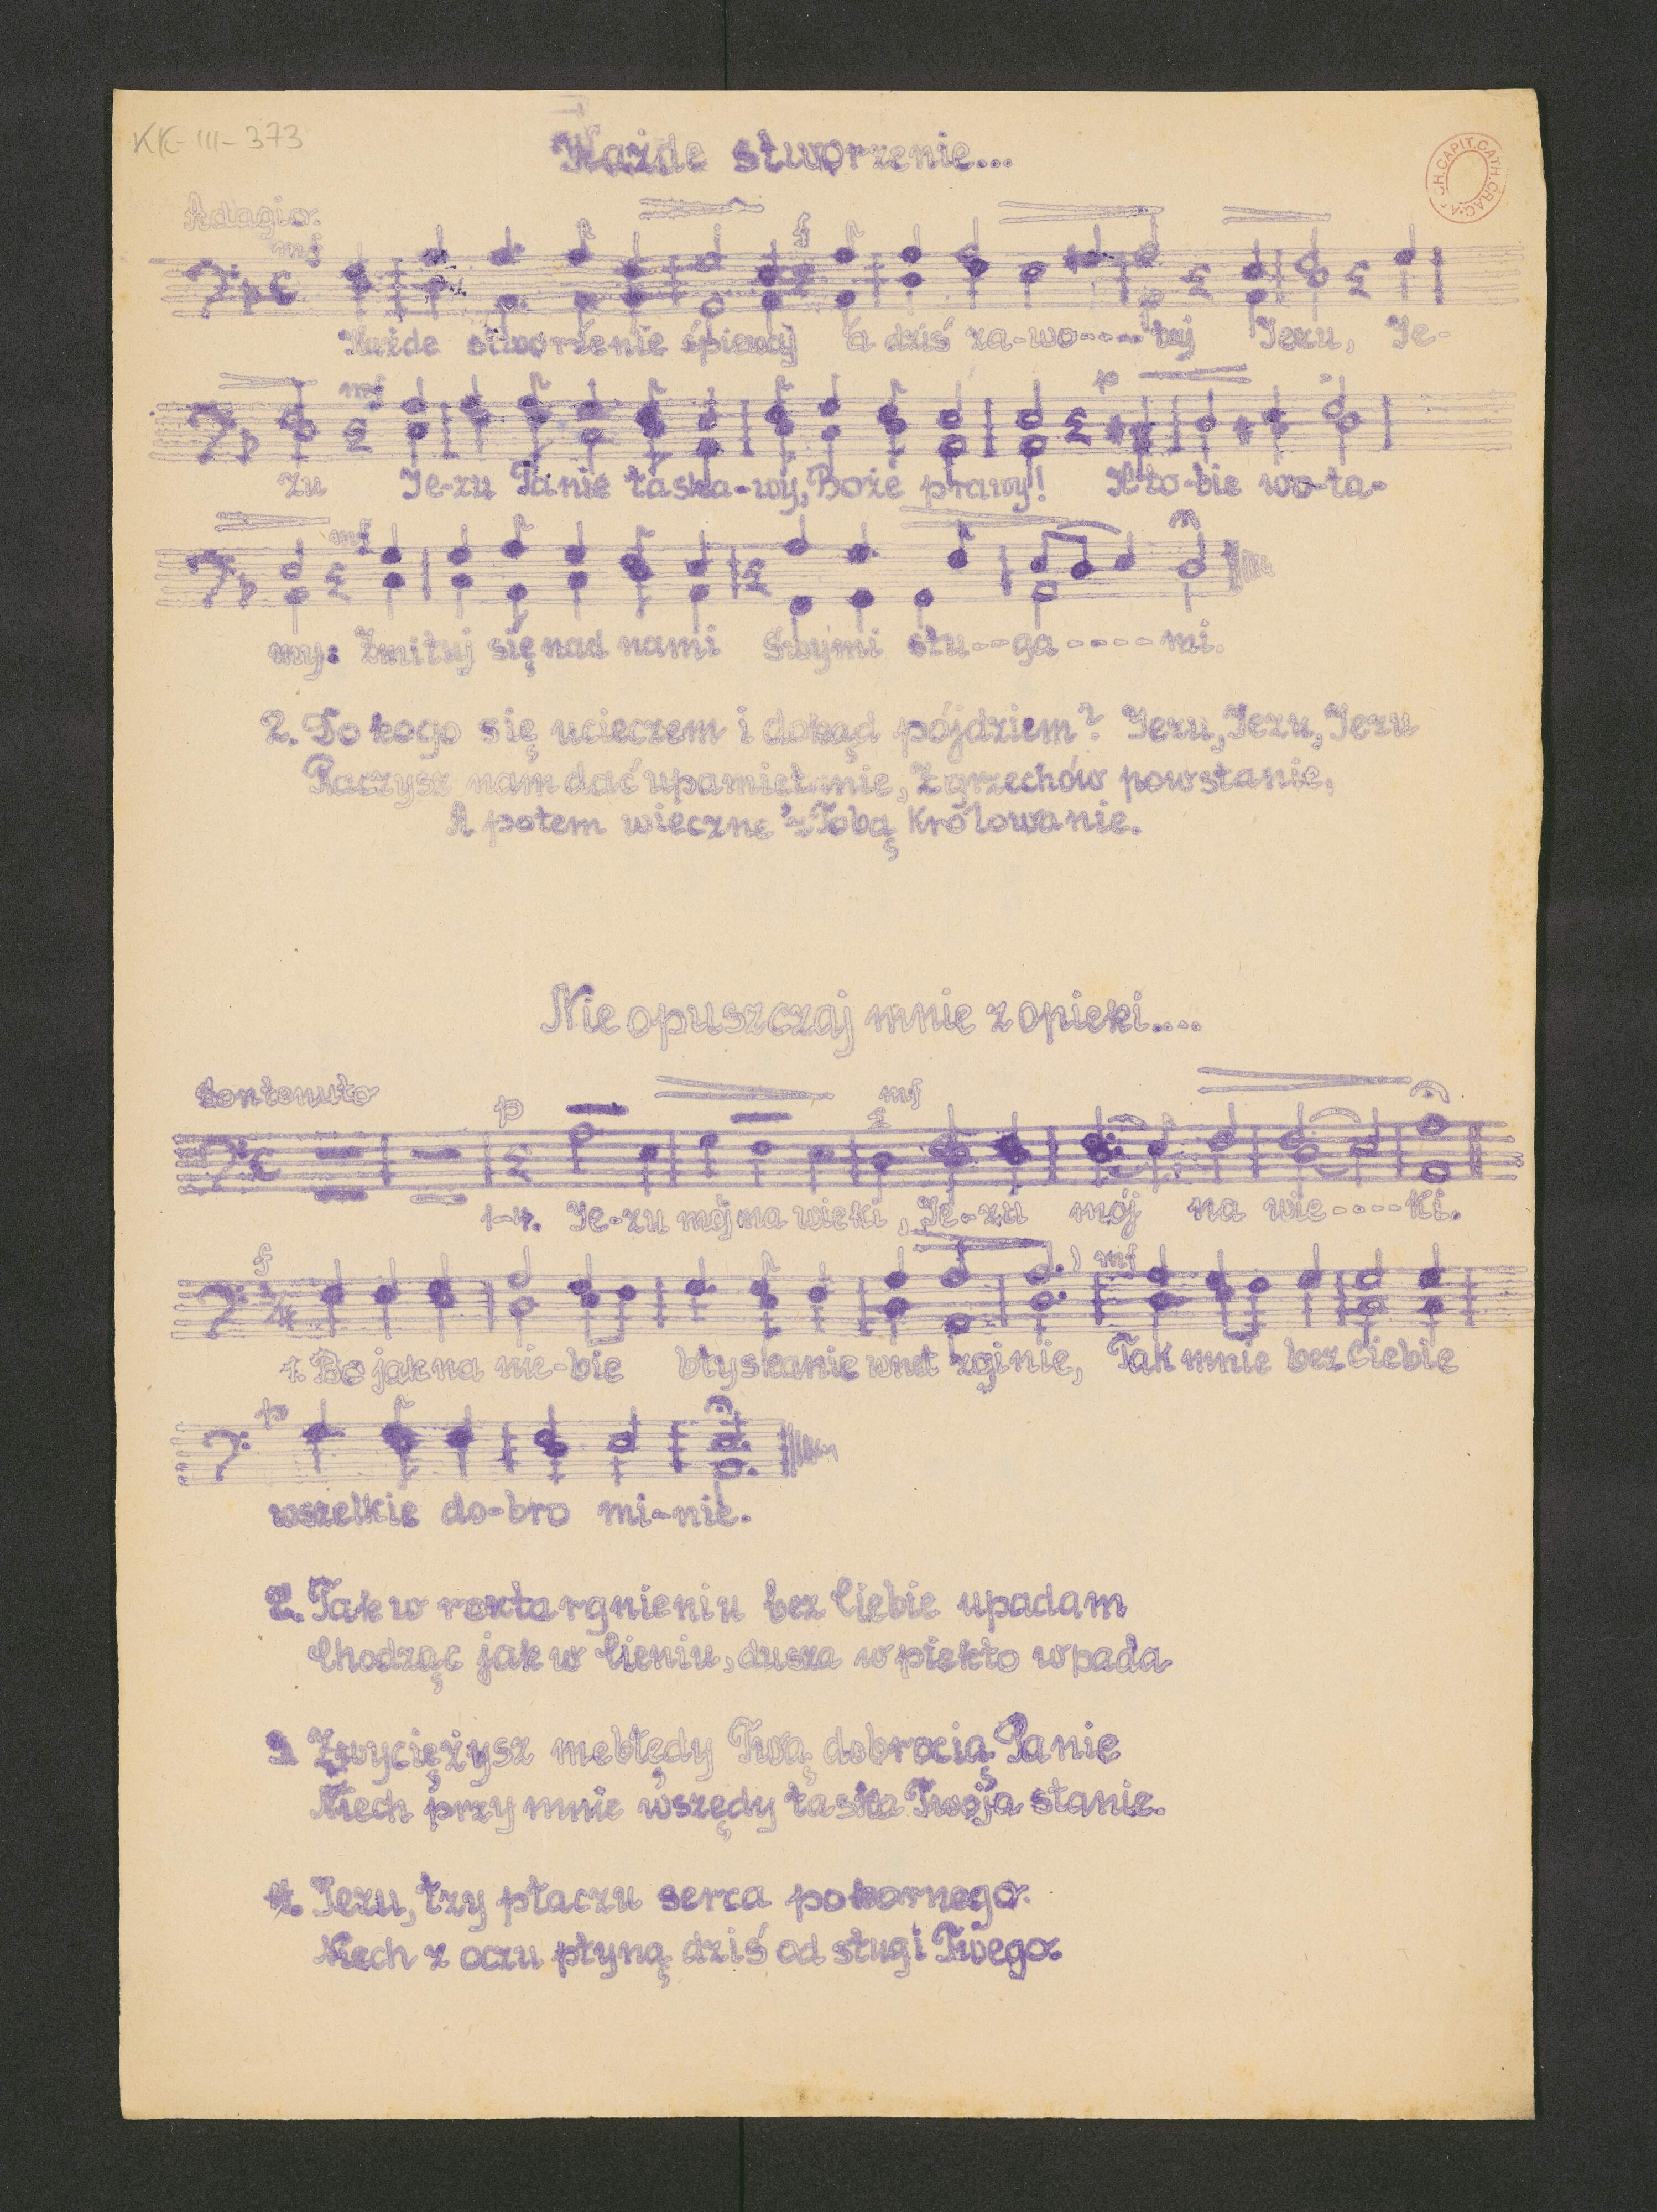 KK-III-373
Każde stworzenie...
ARCH.CAPIT.CATH.CRAC.
Adagio.
mf
f
Każde stworzenie śpiewaj a dziś za-wo----łaj Jezu, Je-
mf
p
zu Je-zu Panie łaska-wy, Boże prawy! K'to-bie wo-ła-
mf
my: Zmiłuj się nad nami Swymi słu--ga----mi.
2. Do kogo się ucieczem i dokąd pójdziem? Jezu, Jezu, Jezu
Raczysz nam dać upamiętanie, Z grzechów powstanie,
A potem wieczne z Tobą Królowanie.
Nie opuszczaj mnie z opieki....
Sontenuto
p
mf
1-4. Je-zu mój na wieki, Je-zu mój na wie----ki.
f
mf
1. Bo jak na nie-bie błyskanie wnet zginie, Tak mnie bez Ciebie
p
wszelkie do-bro mi-nie.
2. Tak w roztargnieniu bez Ciebie upadam
Chodząc jak w Cieniu, dusza w piekło wpada
3 Zwyciężysz me błędy Twą dobrocią Panie
Niech przy mnie wszędy łaska Twoja stanie.
4. Jezu, łzy płaczu serca pokornego.
Niech z oczu płyną dziś od sługi Twego.